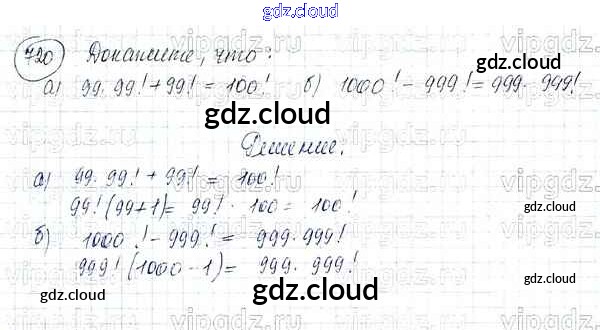 gdz.cloud
720 Докажите, что:
а) 99·99!+99! = 100! б) 1000!-999! = 999·999!
gdz.cloud
Решение.
а) 99·99! + 99! = 100!
99!(99+1) = 99! · 100 = 100!
gdz.cloud
б) 1000! - 999! = 999·999!
999!(1000-1) = 999·999!
gdz.cloud
gdz.cloud
gdz.cloud